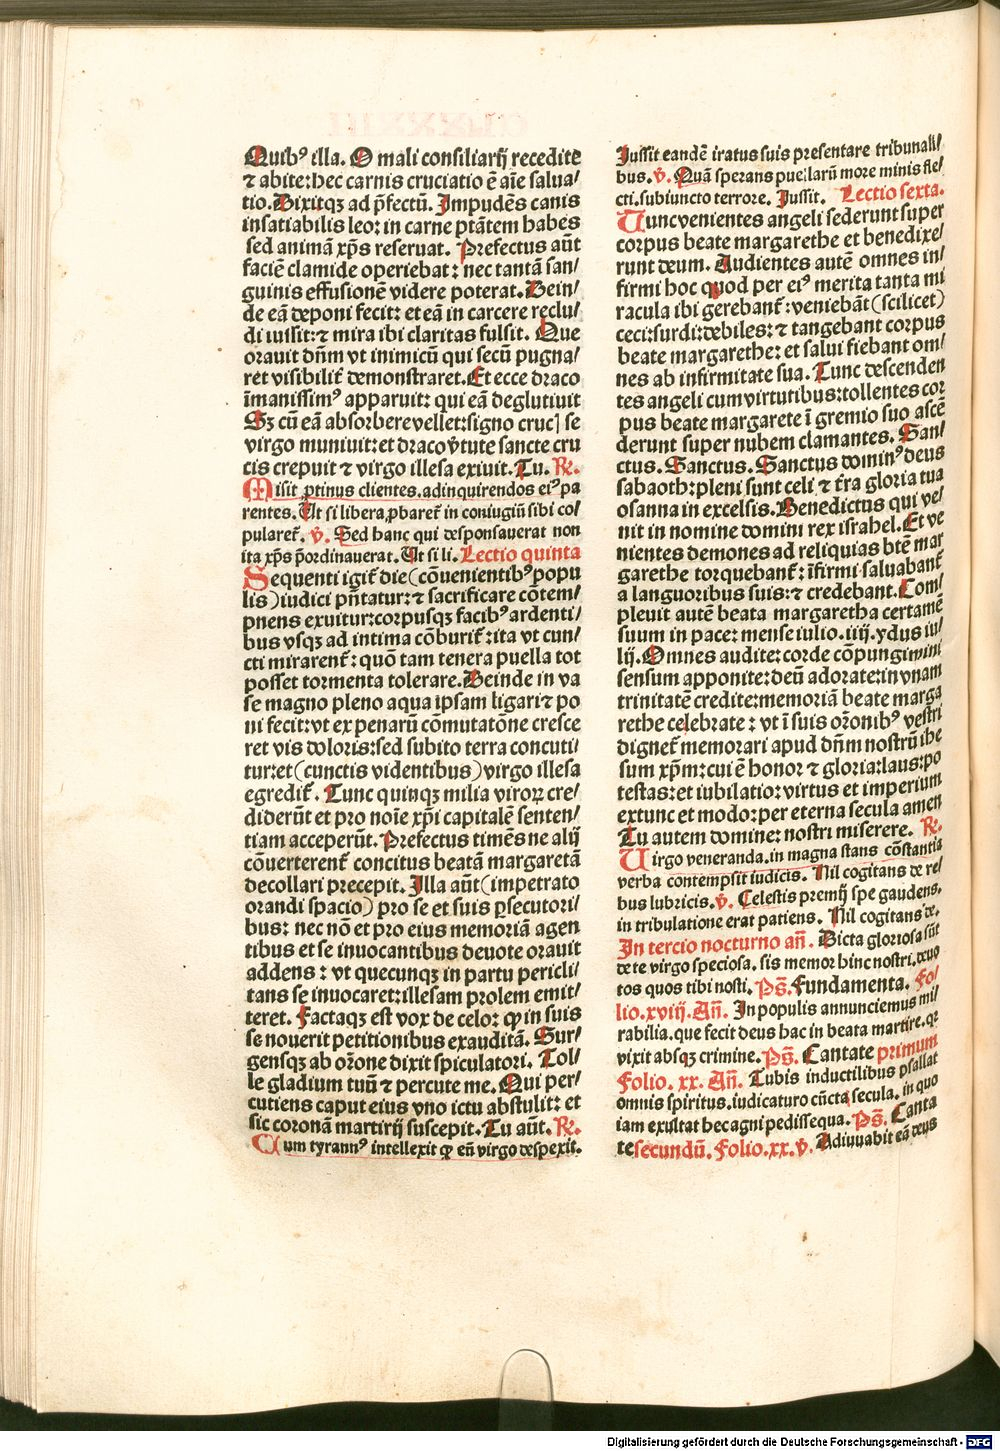 Quibꝰ illa. O mali consiliarij recedite
⁊ abite: hec carnis cruciatio ē aīe salua/
tio. Dixitqꝫ ad p̄fectū. Impudēs canis
insatiabilis leo: in carne ptātem habes
sed animā xp̄s reseruat. Prefectus aūt
faciē clamide operiebat: nec tantā san/
guinis effusionē videre poterat. Dein/
de eā deponi fecit: et eā in carcere reclu/
di iussit: ⁊ mira ibi claritas fulsit. Que
orauit dn̄m vt inimicū qui secū pugna/
ret visibilit̄ demonstraret. Et ecce draco
īmanissimꝰ apparuit: qui eā deglutiuit
Sꝫ cū eā absorbere vellet: signo cruc] se
virgo muniuit: et draco v̄tute sancte cru
cis crepuit ⁊ virgo illesa exiuit. Tu. R̄.
Misit ꝓtinus clientes. ad inquirendos eiꝰ pa
rentes. Ut si libera ꝓbaret̄ in coniugiū sibi co/
pularet̄. v̄. Sed hanc qui desponsauerat non
ita xp̄s p̄ordinauerat. Ut si li. Lectio quinta
Sequenti igit̄ die (cōuenientibꝰ popu
lis) iudici pn̄tatur: ⁊ sacrificare cōtem/
pnens exuitur: corpusqꝫ facibꝰ ardenti/
bus vsqꝫ ad intima cōburit̄: ita vt cun/
cti mirarent̄: quō tam tenera puella tot
posset tormenta tolerare. Deinde in va
se magno pleno aqua ipsam ligari ⁊ po
ni fecit: vt ex penarū cōmutatōne cresce
ret vis doloris: sed subito terra concuti/
tur: et (cunctis videntibus) virgo illesa
egredit̄. Tunc quinqꝫ milia viroꝝ cre/
diderūt et pro noīe xp̄i capitalē senten/
tiam acceperūt. Prefectus timēs ne alij
cōuerterent̄ concitus beatā margaretā
decollari precepit. Illa aūt (impetrato
orandi spacio) pro se et suis ꝑsecutori/
bus: nec nō et pro eius memoriā agen
tibus et se inuocantibus deuote orauit
addens: vt quecunqꝫ in partu pericli/
tans se inuocaret: illesam prolem emit/
teret. Factaqꝫ est vox de celo: ꝙ in suis
se nouerit petitionibus exauditā. Sur/
gensqꝫ ab orōne dixit spiculatori. Tol/
le gladium tuū ⁊ percute me. Qui per/
cutiens caput eius vno ictu abstulit: et
sic coronā martirij suscepit. Tu aūt. R̄.
Cum tyrannꝰ intellexit ꝙ eū virgo despexit.
Iussit eandē iratus suis presentare tribunali/
bus. v̄. Quā sperans puellarū more minis fle/
cti. subiuncto terrore. Iussit. Lectio sexta.
Tunc venientes angeli sederunt super
corpus beate margarethe et benedixe/
runt deum. Audientes autē omnes in/
firmi hoc quod per eiꝰ merita tanta mi
racula ibi gerebant̄: veniebāt (scilicet)
ceci: surdi: debiles: ⁊ tangebant corpus
beate margarethe: et salui fiebant om/
nes ab infirmitate sua. Tunc descenden
tes angeli cum virtutibus: tollentes cor
pus beate margarete ī gremio suo ascē
derunt super nubem clamantes. San/
ctus. Sanctus. Sanctus dominꝰ deus
sabaoth: pleni sunt celi ⁊ t̄ra gloria tua
osanna in excelsis. Benedictus qui ve/
nit in nomine domini rex israhel. Et ve
nientes demones ad reliquias btē mar
garethe torquebant̄: īfirmi saluabant̄
a languoribus suis: ⁊ credebant. Com/
pleuit autē beata margaretha certamē
suum in pace: mense iulio. iiij. ydus iu/
lij. Omnes audite: corde cōpungimini
sensum apponite: deū adorate: in vnam
trinitatē credite: memoriā beate marga
rethe celebrate: vt ī suis orōnibꝰ vestri
dignet̄ memorari apud dn̄m nostrū ihe
sum xp̄m: cui ē honor ⁊ gloria: laus: po
testas: et iubilatio: virtus et imperium
ex tunc et modo: per eterna secula amen
Tu autem domine: nostri miserere. R̄.
Uirgo veneranda. in magna stans cōstantia
verba contempsit iudicis. Nil cogitans de re/
bus lubricis. v̄. Celestis premij spe gaudens.
in tribulatione erat patiens. Nil cogitans de.
In tercio nocturno an̄. Dicta gloriosa sūt
de te virgo speciosa. sis memor hinc nostri. deuo
tos quos tibi nosti. Ps̄. Fundamenta. Fo/
lio. xviij. An̄. In populis annunciemus mi/
rabilia. que fecit deus hac in beata martire. q̄
vixit absqꝫ crimine. Ps̄. Cantate primum
Folio. xx. An̄. Tubis inductilibus psallat
omnis spiritus. iudicaturo cūcta secula. in quo
iam exultat hec agni pedissequa. Ps̄. Canta
te secundū. Folio. xx. v̄. Adiuuabit eā deus
Digitalisierung gefördert durch die Deutsche Forschungsgemeinschaft - DFG